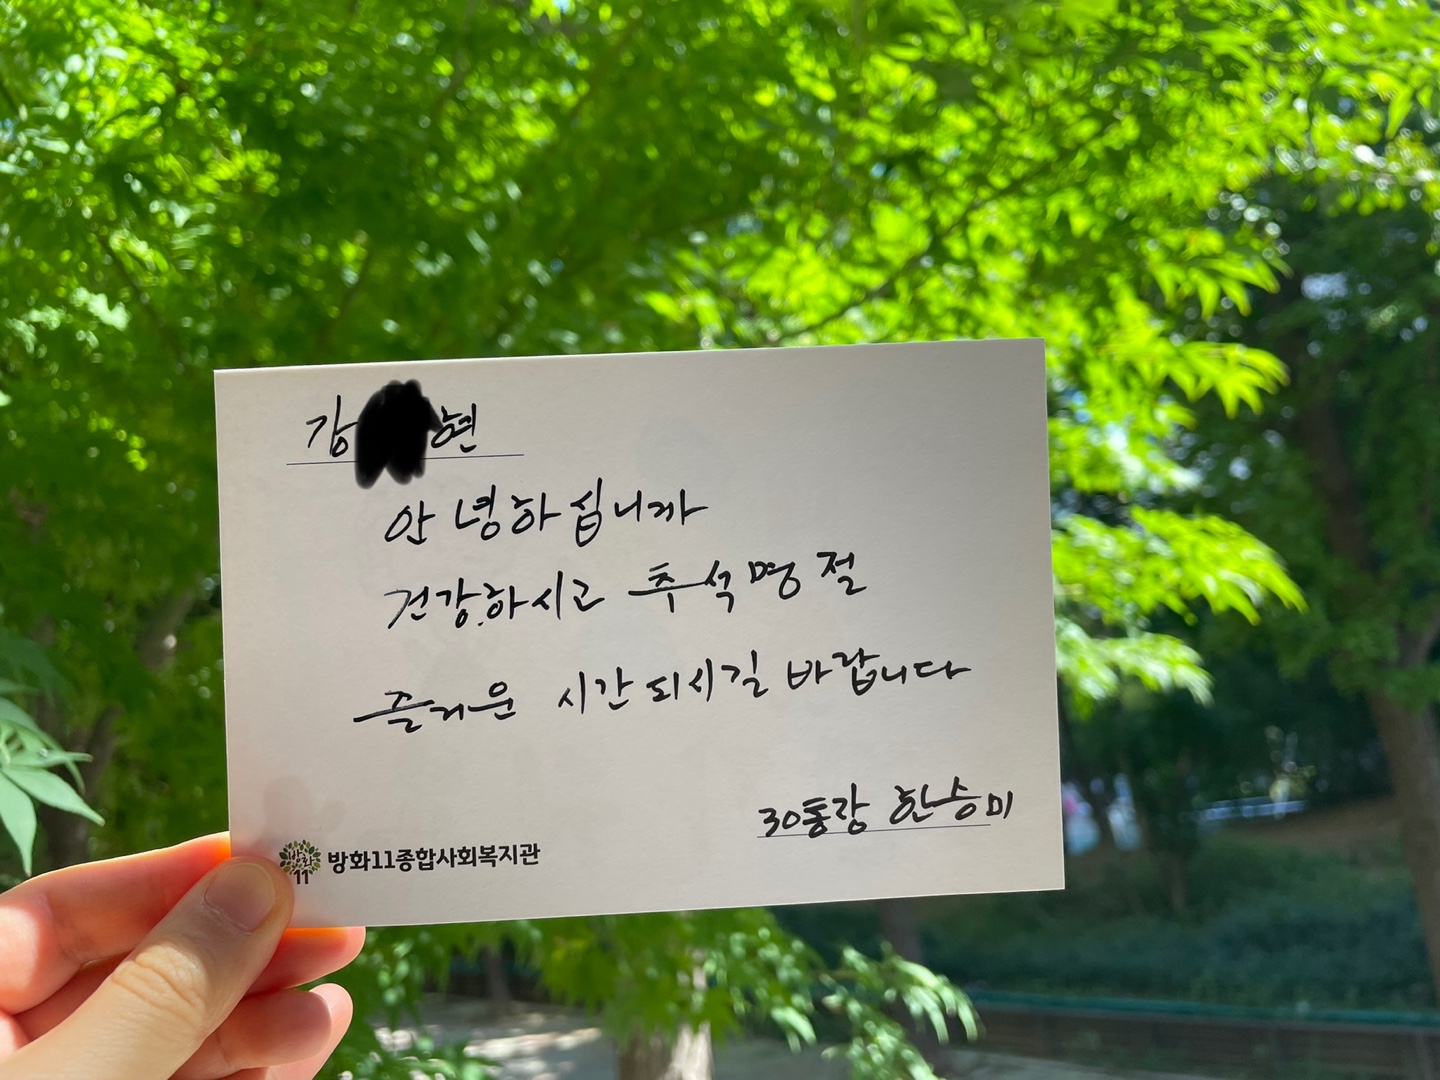 강 현
안녕하십니까
건강하시고 추석명절
즐거운 시간되시길 바랍니다
30통장 한승미
방화
11
방화11종합사회복지관